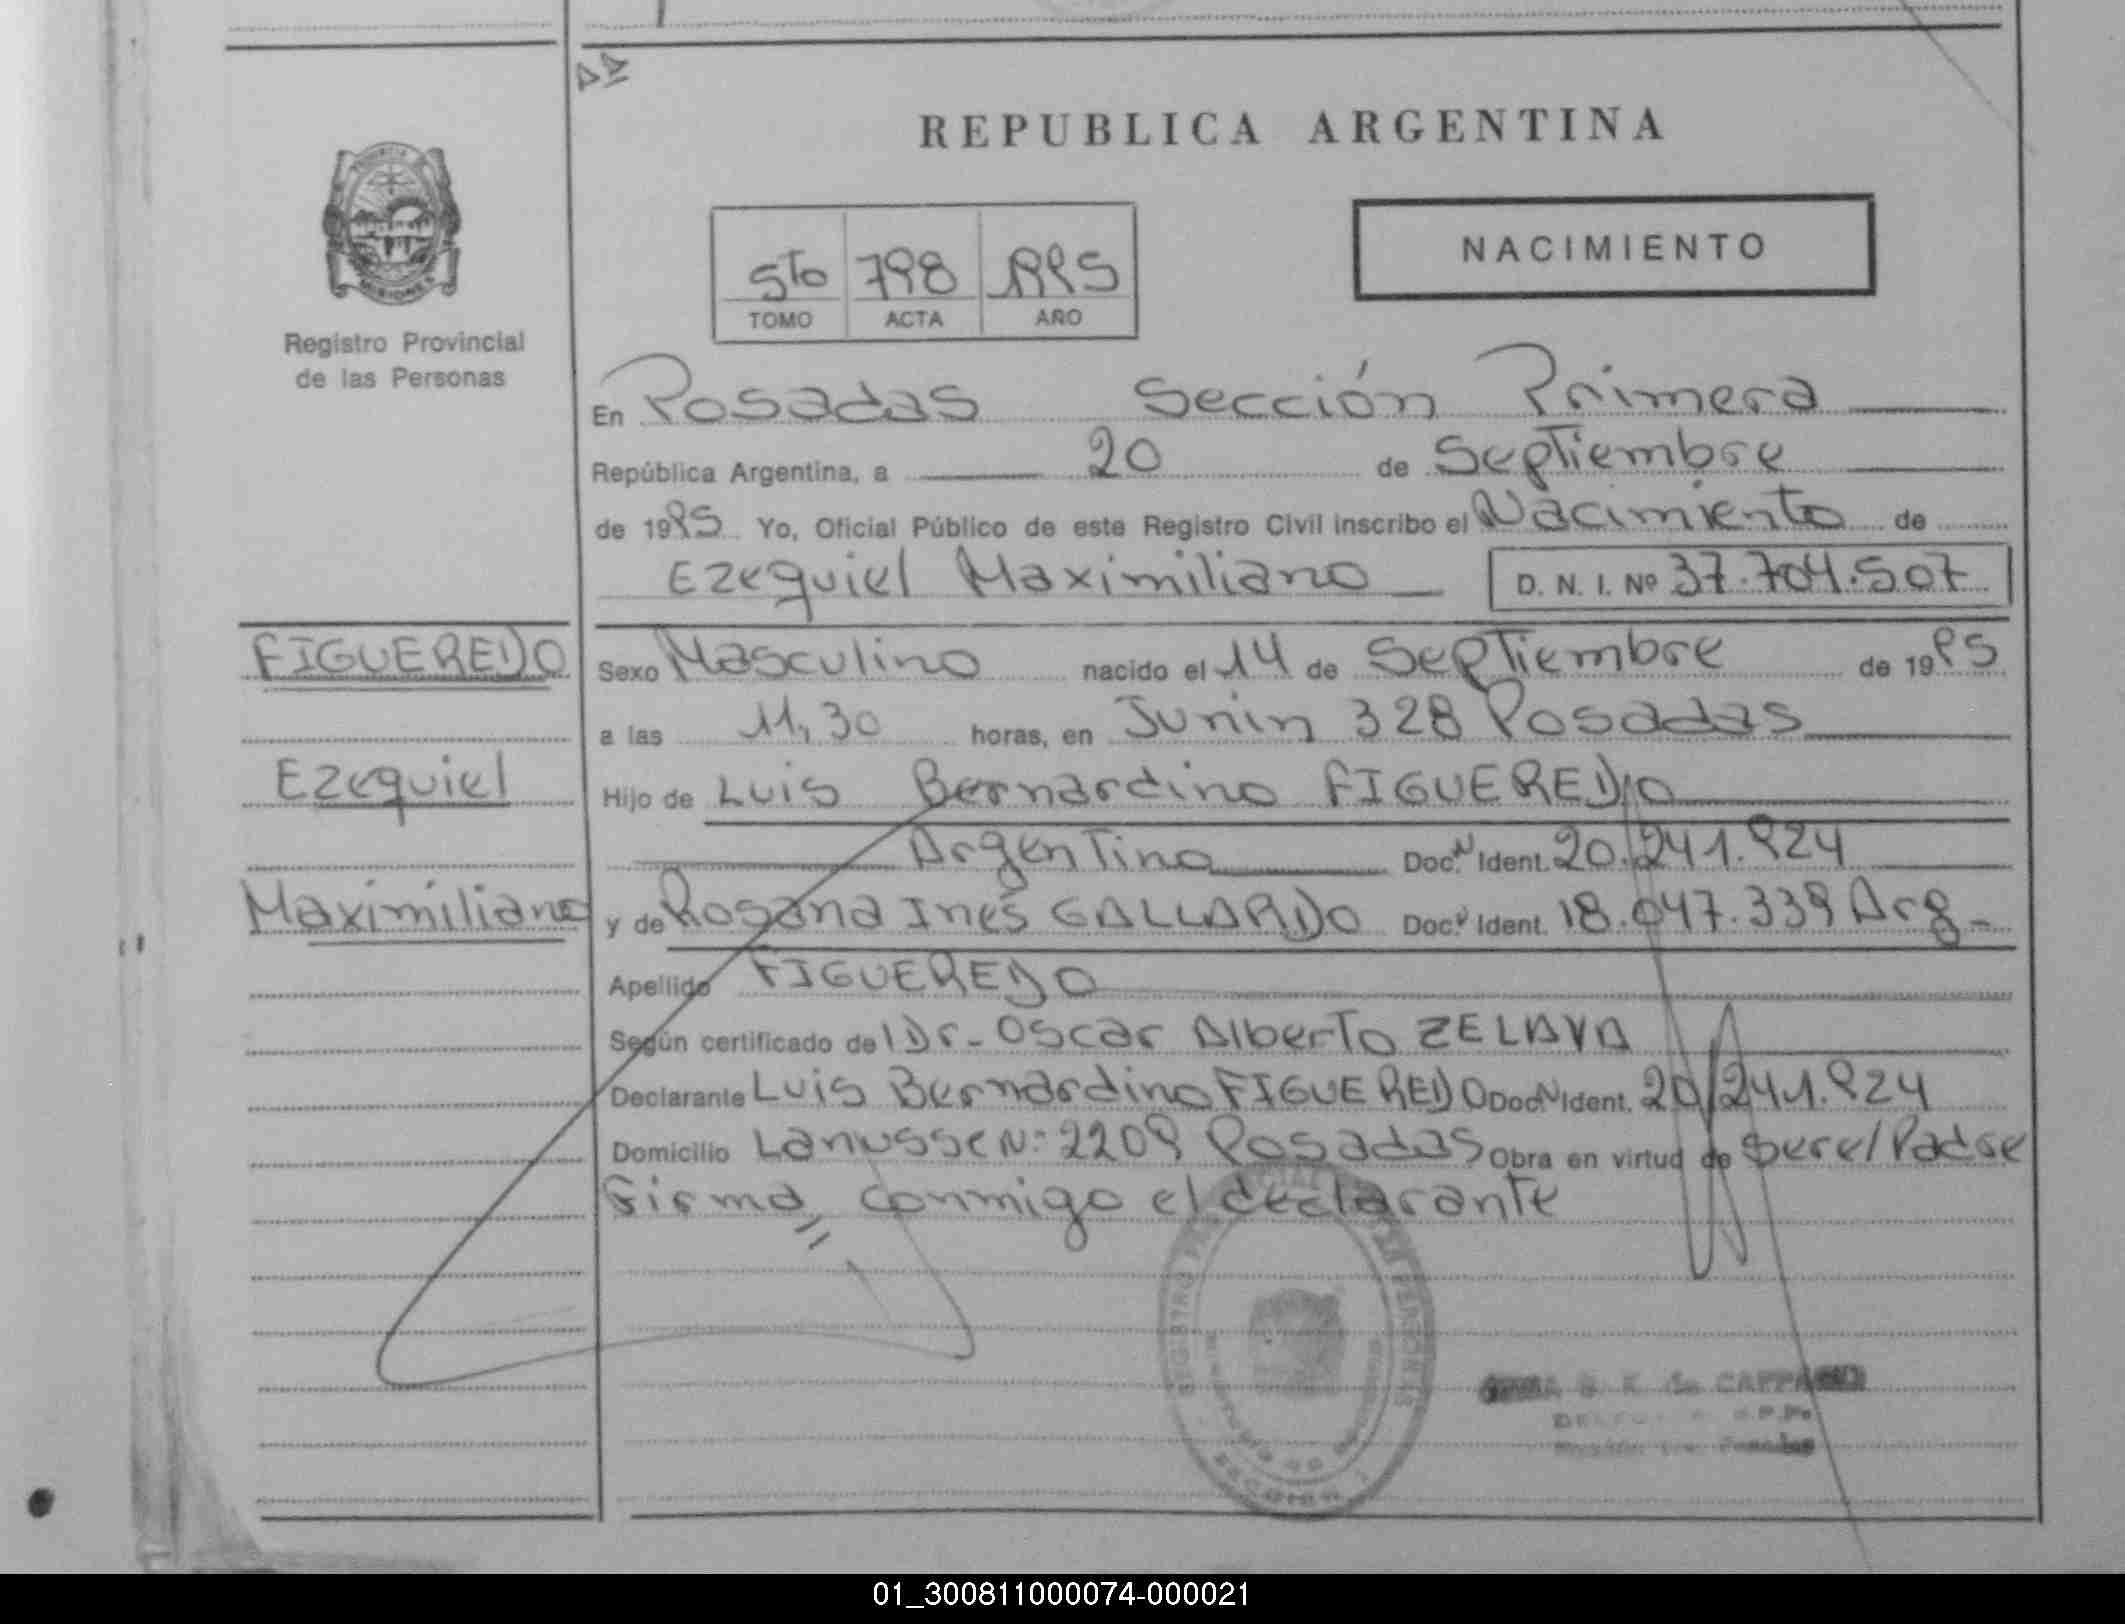 REPUBLICA ARGENTINA
NACIMIENTO
5to 798 1995
TOMO ACTA AÑO
MISIONES
Registro Provincial
de las Personas
En Posadas Sección Primera
República Argentina, a 20 de Septiembre
de 1995 Yo, Oficial Público de este Registro Civil inscribo el Nacimiento de
Ezequiel Maximiliano D. N. I. Nº 37.704.507
FIGUEREDO
Ezequiel
Maximiliano
Sexo Masculino nacido el 14 de Septiembre de 1995
a las 11,30 horas, en Junin 328 Posadas
Hijo de Luis Bernardino FIGUEREDO
Argentino Doc. N Ident. 20.241.924
y de Rosana Inés GALLARDO Doc. N Ident. 18.047.339 Arg.
Apellido FIGUEREDO
Según certificado del Dr. Oscar Alberto ZELAYA
Declarante Luis Bernardino FIGUEREDO Doc N Ident. 20.241.924
Domicilio Lanusse N: 2209 Posadas Obra en virtud de ser el Padre
Firma, conmigo el declarante
de CAPPA
Posadas
01_300811000074-000021